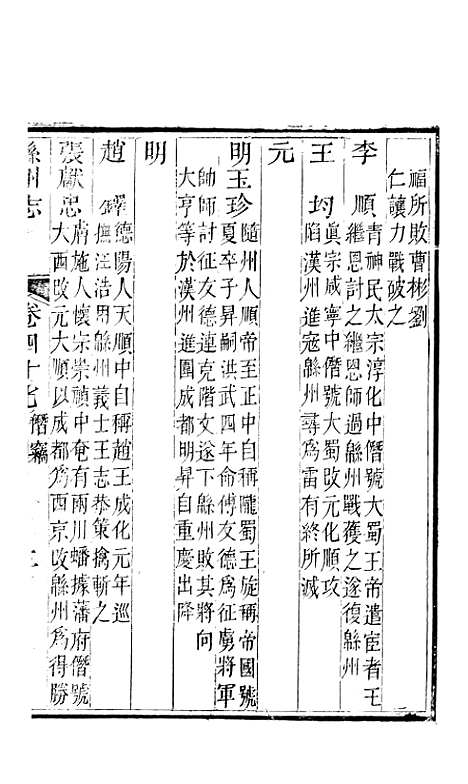 福所敗曹彬劉
仁讓力戰破之
李順青神民太宗淳化中僭號大蜀王帝遣宦者王
繼恩討之繼恩師過緜州戰獲之遂復緜州
王均眞宗咸寧中僭號大蜀改元化順攻
陷漢州進寇緜州尋爲雷有終所滅
元
明玉珍隨州人順帝至正中自稱隴蜀王旋稱帝國號
夏卒子昇嗣洪武四年命傅友德爲征虜將軍
帥師討征友德連克階文遂下緜州敗其將向
大亨等於漢州進圍成都明昇自重慶出降
明
趙鐸德陽人天順中自稱趙王成化元年巡
撫汪浩用緜州義士王志恭策擒斬之
張獻忠膚施人懷宗崇禎中奄有兩川蟠據藩府僭號
大西改元大順以成都爲西京改緜州爲得勝
緜州志 卷四十七 僭竊